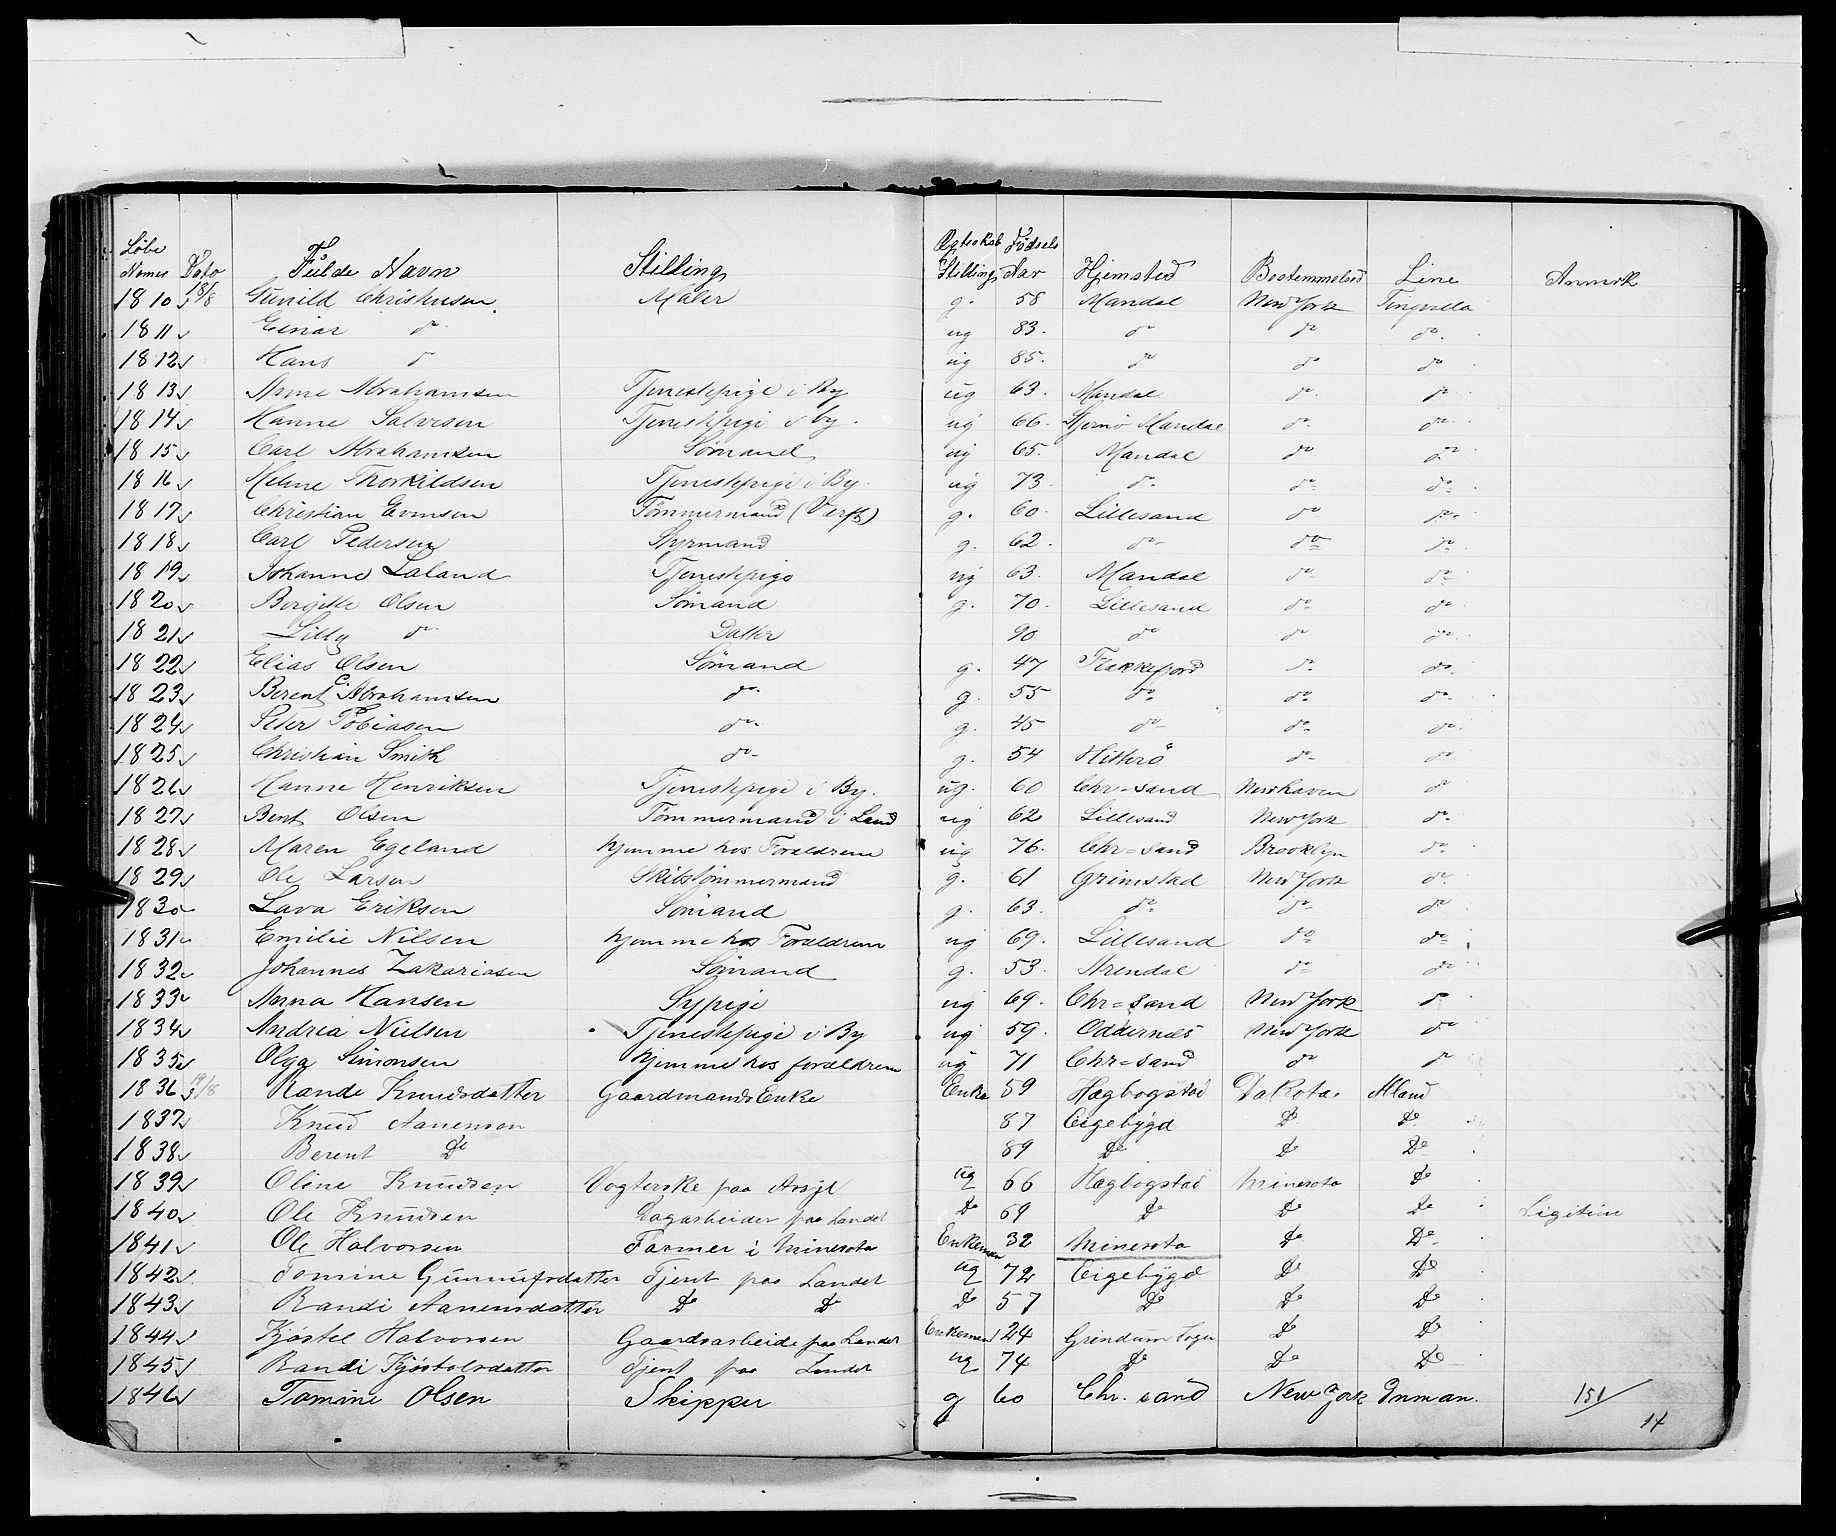 Løbe Nomer Dato Fulde Navn Stilling Ægteskab Stilling Fødsels Aar Hjemsted Bestemmelsed Line Anmerk
1810 18/8 Gunild Christensen Maler g. 58 Mandal New York Tingvalla
1811 Einar do ug 83. do do do.
1812 Hans do ug 85. do do do
1813 Anne Abrahamsen Tjenestepige i By ug 63. Mandal do. do
1814 Hanne Salvesen Tjenestepige i by. ug 66. Mandal do do
1815 Carl Abrahamsen Sømand ug 65. Mandal do do
1816 Helene Thorkildsen Tjenestepige i By. ug 73. do. do do
1817 Christian Evensen Tømmermand (Værft) g. 60. Lillesand do do
1818 Carl Pedersen Styrmand g. 62. do do do
1819 Johanne Laland Tjenestepige ug 63. Mandal do do
1820 Bergitte Olsen Sømand g. 70. Lillesand do do
1821 Lilly do Datter 90 do do do
1822 Elias Olsen Sømand g. 47 Flekkefjord do do
1823 Berent C. Abrahamsen do g. 55 do do do
1824 Peter Tobiasen do g. 45 do do do
1825 Christian Smith do g. 54 Hitterø do do
1826 Hanne Henriksen Tjenestepige i By. ug. 60 Chr-sand Newhaven do
1827 Bent Olsen Tømmermand i Land ug 62 Lillesand New York do
1828 Maren Egeland hjemme hos Forældrene ug 76. Chr=sand Brooklyn do
1829 Ole Larsen Skibstømmermand g. 61 Grimstad New York do.
1830 Lava Eriksen Sømand g. 63. do do do
1831 Emilie Nilsen hjemme hos Forældrene ug 69. Lillesand do do
1832 Johannes Zakariasen Sømand g. 53. Arendal do do
1833 Anna Hansen Sypige ug 69. Chr=sand New York do
1834 Andrea Nielsen Tjenestepige i By ug 59. Oddernæs New York do
1835 Olga Simonsen hjemme hos forældrene ug 71 Chr=sand do do
1836 19/8 Rande Knudsdatter Gaardmands Enke Enke 59 Hægbogstad Dakota Alland
1837 Knud Aanensen 87 Eigebygd Do Do
1838 Berent Do 89 Do Do Do
1839 Oline Knudsen Vogterske paa Asyl ug 66 Hægbogstad Minesota Do
1840 Ole Knudsen Dagarbeider paa Landet Do 69 Do Do Do Legitim
1841 Ole Halvorsen Farmer i Minesota Enkeman 32 Minesota Do Do
1842 Tomine Gunnufsdatter Tjent paa Landet ug 72 Eigebygd Do Do
1843 Randi Aanensdatter Do Do Do 57 Do Do Do
1844 Kjøstel Halvorsen Gaardsarbeide paa Landet Enkeman 24 Grindum Sogn Do Do
1845 Randi Kjøstolsdatter Tjent paa Landet ug 74 Do Do Do
1846 Tomine Olsen Skipper g 60 Chr. sand New York Inman. 151/
14